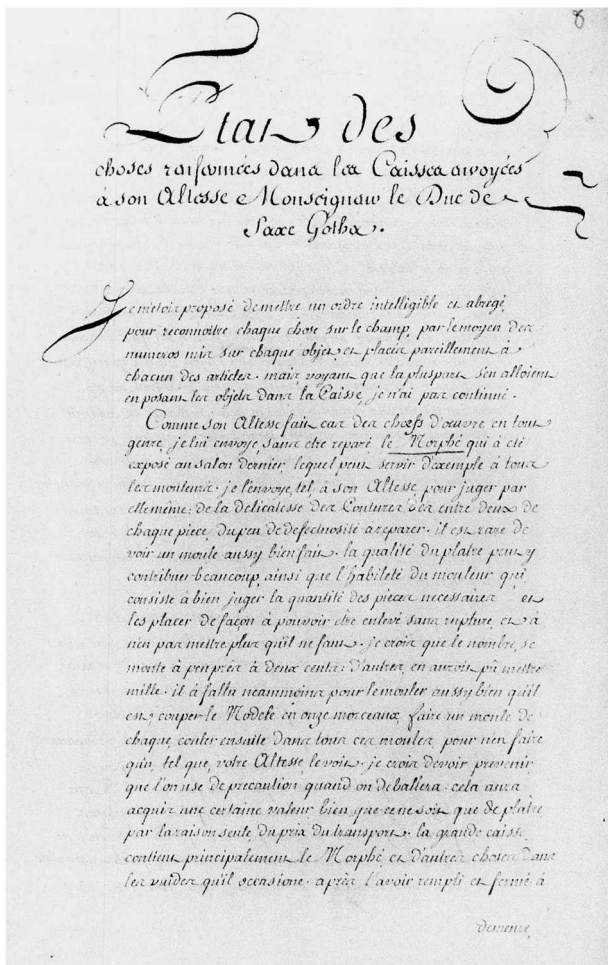 8
Etat des
choses renfermées dans les Caisses envoyées
à son Altesse Monseigneur le Duc de
Saxe Gotha.
Je m'etois proposé de mettre un ordre intelligible et abregé
pour reconnoitre chaque chose sur le champ, par le moyen des
numeros mis sur chaque objet et placés pareillement à
chacun des articles. mais voyant que la pluspart s'en alloient
en posant les objets dans la Caisse, je n'ai pas continué.
Comme son Altesse fait cas des chœfs d'œuvre en tout
genre, je lui envoye, sans etre reparé le Morphé qui à été
exposé au salon dernier, lequel peut servir d'exemple à tous
les mouleurs. je l'envoye, tel, à son Altesse, pour juger par
ellemême: de la délicatesse des Coutures des entre deux de
chaque piece, du peu de defectuosité à reparer. il est rare de
voir un moule aussy bien fait. la qualité du platre peut y
contribuer beaucoup, ainsi que l'habileté du mouleur qui
consiste à bien juger la quantité des pieces necessaires et
les placer de façon à pouvoir etre enlevé sans rupture, et à
n'en pas mettre plus qu'il ne faut. je crois que le nombre, se
monte à peu près à deux cents: d'autres, en auroit pû mettre
mille. il à fallu neammoins pour le mouler aussy bien qu'il
est, couper le Modele en onze morceaux, faire un moule de
chaque, couler ensuite dans tous ces moules, pour n'en faire
qu'un, tel que, votre Altesse le voit. je crois devoir prevenir
que l'on use de precaution quand on deballera. cela aura
acquis une certaine valeur bien que ce ne soit que de platre
par la raison seule du prix du transport. la grande caisse
contient principalement le Morphé, et d'autres choses dans
les vuides qu'il occasione. après l'avoir rempli et fermé à
demeure,